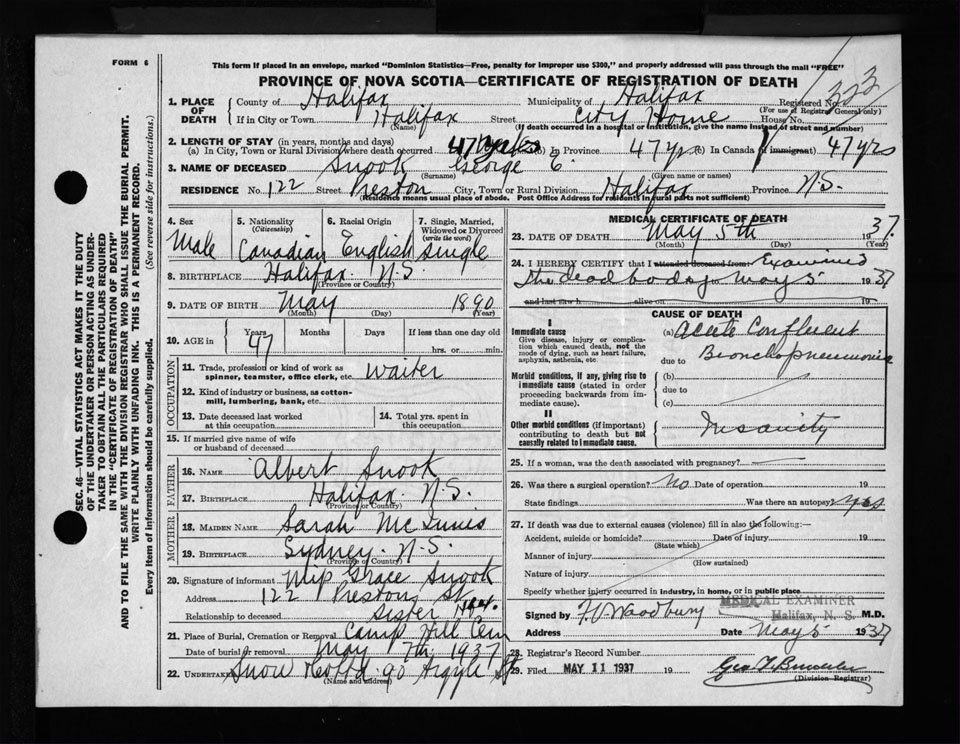 FORM 6
This form if placed in an envelope, marked "Dominion Statistics—Free, penalty for improper use $300," and properly addressed will pass through the mail "FREE"
PROVINCE OF NOVA SCOTIA—CERTIFICATE OF REGISTRATION OF DEATH
1. PLACE OF DEATH County of Halifax Municipality of Halifax Registered No. 323
(For use of Registrar General only)
If in City or Town. Halifax Street City Home House No.
(Name) (If death occurred in a hospital or institution, give the name instead of street and number)
2. LENGTH OF STAY (in years, months and days)
(a) In City, Town or Rural Division where death occurred 47 yrs (b) In Province 47 yrs (c) In Canada (if immigrant) 47 yrs
3. NAME OF DECEASED Snook George E.
(Surname) (Given name or names)
RESIDENCE No. 122 Street Preston City, Town or Rural Division Halifax Province N.S.
(Residence means usual place of abode. Post Office Address for residents in rural parts not sufficient)
4. Sex 5. Nationality (Citizenship) 6. Racial Origin 7. Single, Married, Widowed or Divorced (write the word)
Male Canadian English Single
8. BIRTHPLACE Halifax. N.S.
(Province or Country)
9. DATE OF BIRTH May 1890
(Month) (Day) (Year)
10. AGE in Years Months Days If less than one day old
47 hrs. or min.
OCCUPATION
11. Trade, profession or kind of work as spinner, teamster, office clerk, etc. Waiter
12. Kind of industry or business, as cotton-mill, lumbering, bank, etc.
13. Date deceased last worked at this occupation
14. Total yrs. spent in this occupation
15. If married give name of wife or husband of deceased
FATHER
16. NAME Albert Snook
17. BIRTHPLACE Halifax. N.S.
(Province or Country)
MOTHER
18. MAIDEN NAME Sarah McInnis
19. BIRTHPLACE Sydney. N.S.
(Province or Country)
20. Signature of informant Miss Grace Snook
Address 122 Preston St
Relationship to deceased Sister
21. Place of Burial, Cremation or Removal Camp Hill Cem
Date of burial or removal May 7th 1937
22. Undertaker Snow 90 Argyle St
(Name and address)
MEDICAL CERTIFICATE OF DEATH
23. DATE OF DEATH May 5th 1937.
(Month) (Day) (Year)
24. I HEREBY CERTIFY that I attended deceased from Examined
the dead body May 5 1937
and last saw h alive on 19
CAUSE OF DEATH
I
Immediate cause
Give disease, injury or complication which caused death, not the mode of dying, such as heart failure, asphyxia, asthenia, etc.
(a) Acute Confluent
due to Bronchopneumonia
Morbid conditions, if any, giving rise to immediate cause (stated in order proceeding backwards from immediate cause).
(b)
due to
(c)
II
Other morbid conditions (if important) contributing to death but not causally related to immediate cause.
Insanity
25. If a woman, was the death associated with pregnancy?
26. Was there a surgical operation? No Date of operation 19
State findings Was there an autopsy? yes
27. If death was due to external causes (violence) fill in also the following:—
Accident, suicide or homicide? Date of injury 19
(State which)
Manner of injury
(How sustained)
Nature of injury
Specify whether injury occurred in industry, in home, or in public place
MEDICAL EXAMINER
Halifax, N. S.
Signed by Woodbury M.D.
Address Date May 5 1937
28. Registrar's Record Number
29. Filed MAY 11 1937 19
(Division Registrar)
SEC. 46—VITAL STATISTICS ACT MAKES IT THE DUTY
OF THE UNDERTAKER OR PERSON ACTING AS UNDER-
TAKER TO OBTAIN ALL THE PARTICULARS REQUIRED
IN THE "CERTIFICATE OF REGISTRATION OF DEATH"
AND TO FILE THE SAME WITH THE DIVISION REGISTRAR WHO SHALL ISSUE THE BURIAL PERMIT.
WRITE PLAINLY WITH UNFADING INK. THIS IS A PERMANENT RECORD.
Every item of information should be carefully supplied. (See reverse side for instructions.)